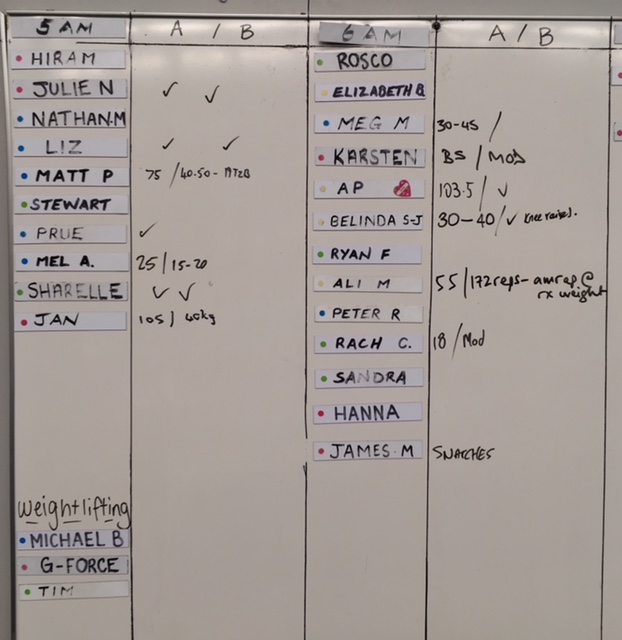 5 AM A / B
HIRAM
JULIE N ✓ ✓
NATHAN.M
LIZ ✓ ✓
MATT P 75 / 40.50 -
STEWART
PRUE ✓
MEL A. 25 | 15-20
SHARELLE ✓ ✓
JAN 105 / 40kg
weightlifting
MICHAEL B
G-FORCE
TIM
6 AM A / B
ROSCO
ELIZABETH B
MEG M 30-45 /
KARSTEN BS / MOD
AP 103.5 / ✓
BELINDA S-J 30-40 / ✓ knee raises.
RYAN F
ALI M 55 / 172 reps - amrap @
rx weight
PETER R
RACH C. 18 / Mod
SANDRA
HANNA
JAMES.M SNATCHES